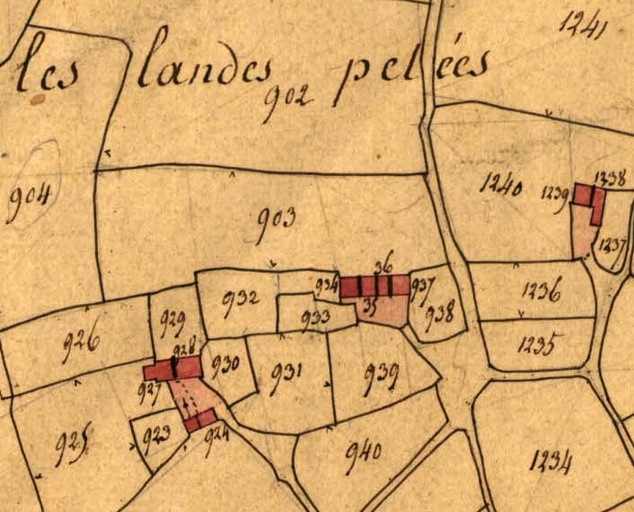 1241
les landes pelées
902
904
1240
1239
1238
903
1237
934
36
937
1236
932
35
938
929
933
926
1235
928
930
931
939
927
923
924
925
940
1234